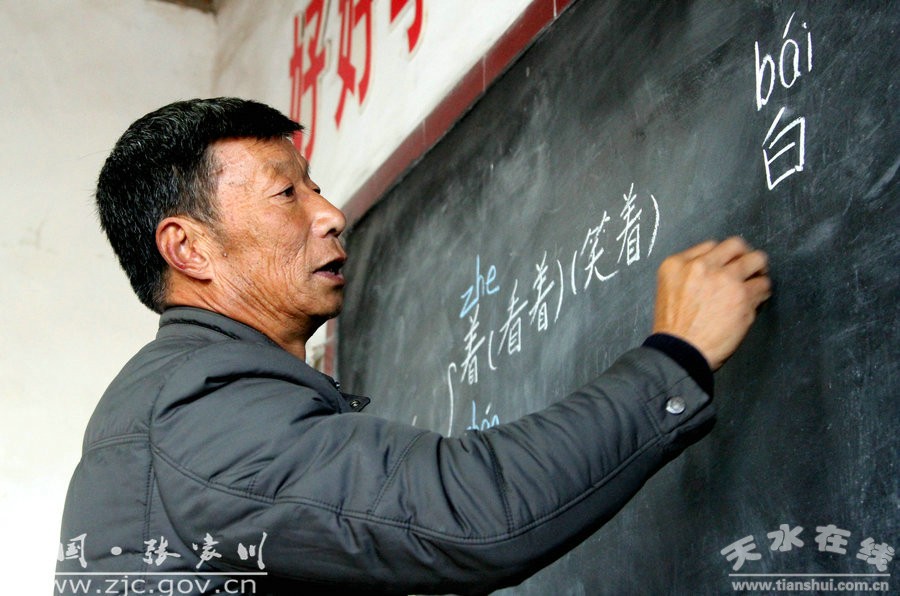 好好
bái
白
zhe
着(看着)(笑着)
国·张家川
www.zjc.gov.cn
天水在线
www.tianshui.com.cn